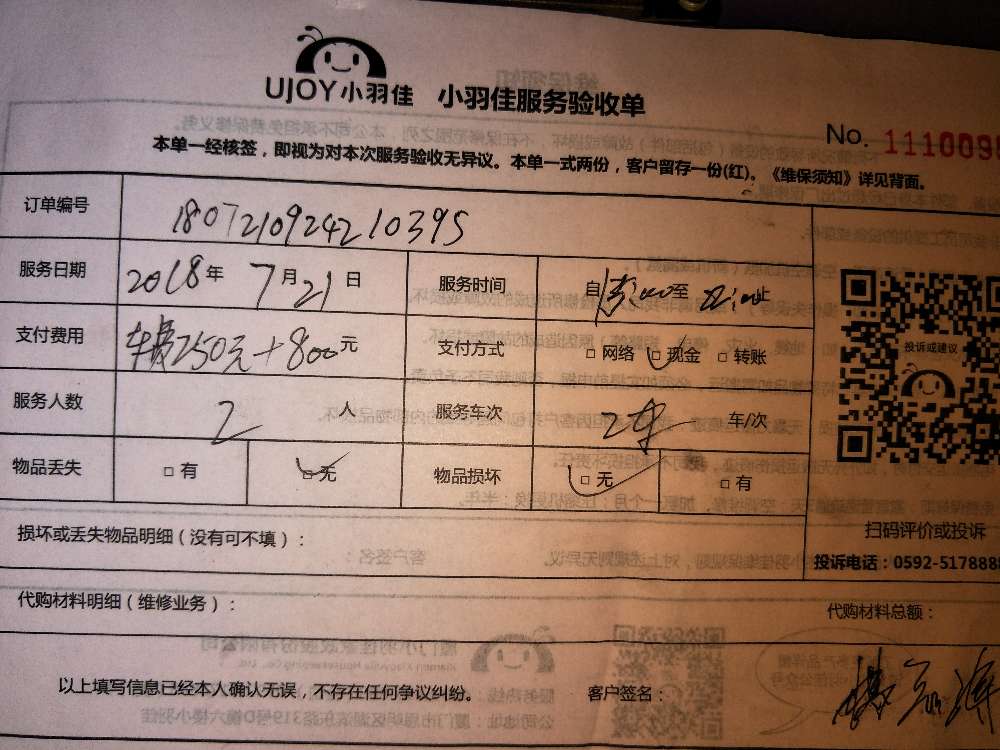 UJOY小羽佳 小羽佳服务验收单
No. 1110099
本单一经核签，即视为对本次服务验收无异议。本单一式两份，客户留存一份(红)。《维保须知》详见背面。
订单编号 1807210924210395
服务日期 2018年 7月21日 服务时间 自 至 22:00止
支付费用 车费250元+800元 支付方式 □网络 □现金 □转账
服务人数 2 人 服务车次 2车 车/次
投诉或建议
物品丢失 □有 □无 物品损坏 □无 □有
损坏或丢失物品明细（没有可不填）：
扫码评价或投诉
投诉电话：0592-5178888
代购材料明细（维修业务）： 代购材料总额：
以上填写信息已经本人确认无误，不存在任何争议纠纷。 客户签名：